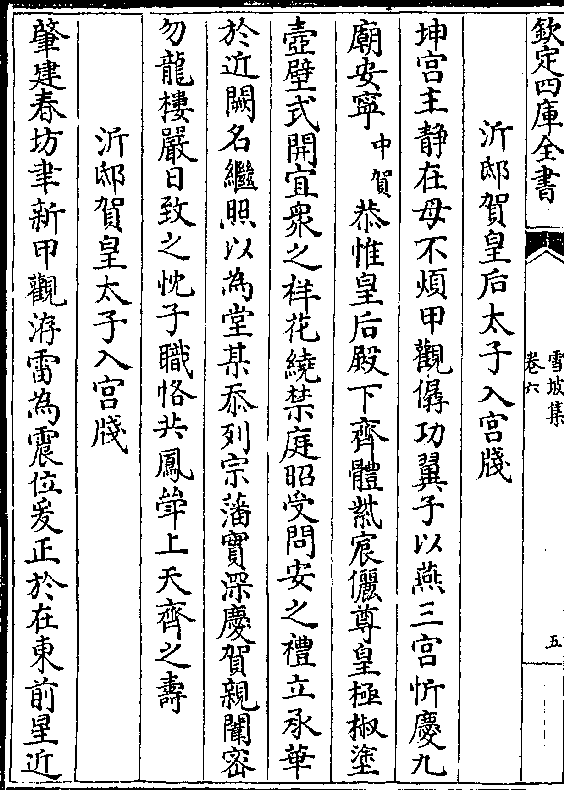 欽定四庫全書
雪坡集
卷六
五
沂邸賀皇后太子入宫牋
坤宫主静在母不煩甲觀僝功翼子以燕三宫忻慶九
廟安寧中賀恭惟皇后殿下齊體黻宸儷尊皇極椒塗
壼壁式開宜衆之祥花繞禁庭昭受問安之禮立承華
於近闕名繼照以為堂某忝列宗藩實深慶賀親闈密
勿龍樓嚴日致之忱子職恪共鳳㪺上天齊之壽
沂邸賀皇太子入宫牋
肇建春坊聿新甲觀洊雷為震位爰正於在東前星近